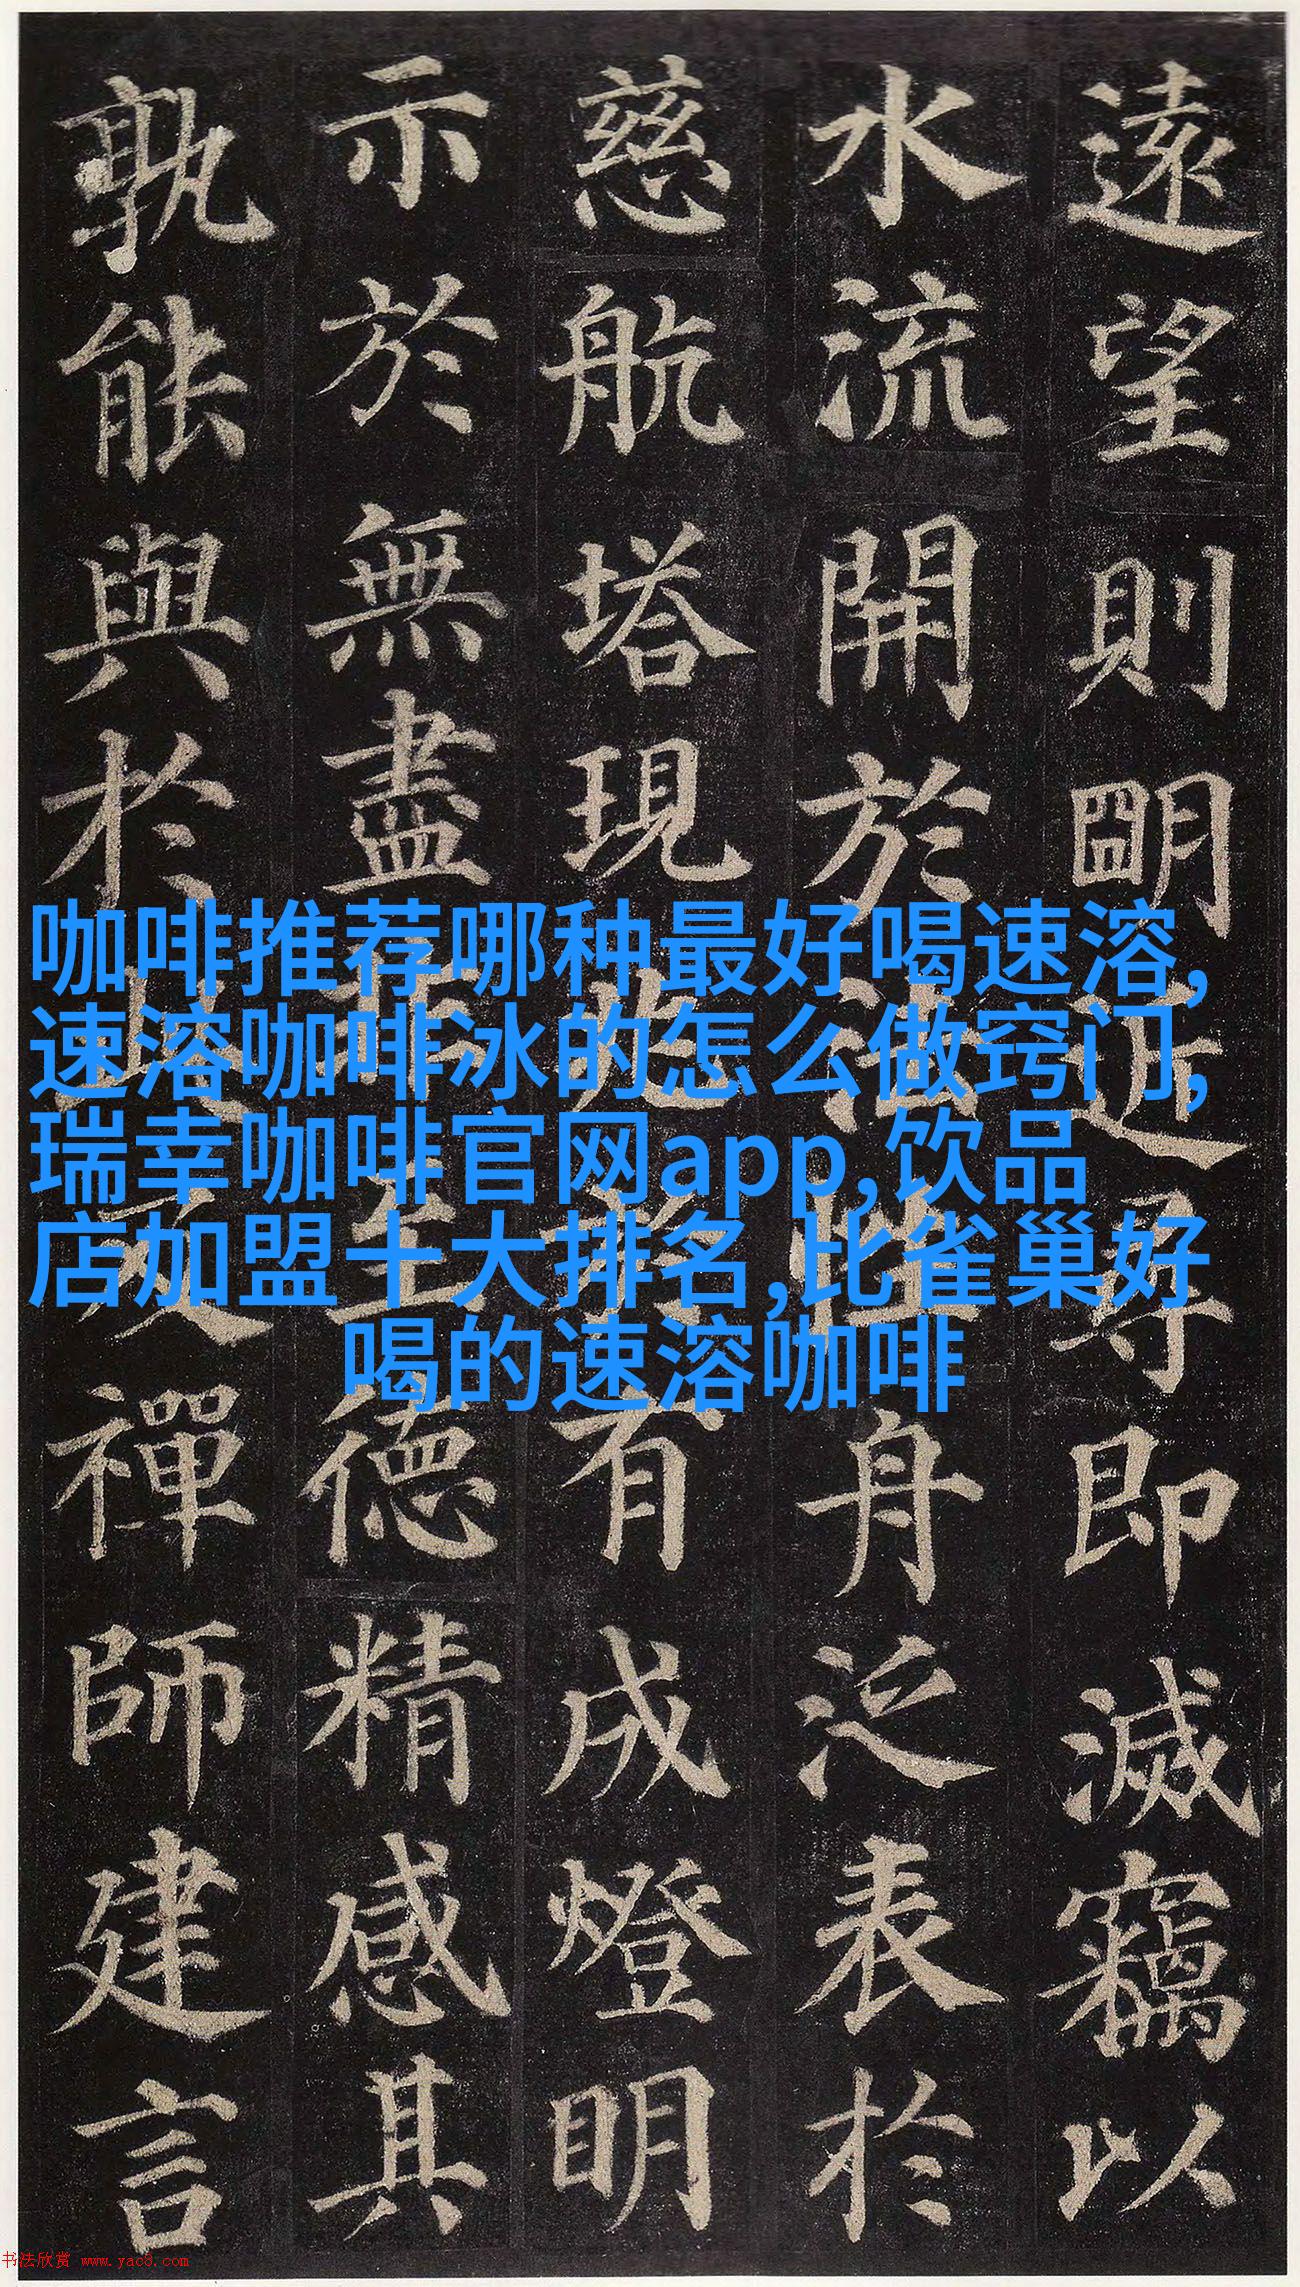 遠望則明近尋即滅竊以
水流開於法性舟泛表於
慈航塔現兆於有成燈明
示於無盡非至德精感其
孰能與於此及禪師建言
咖啡推荐哪种最好喝速溶,
速溶咖啡冰的怎么做窍门,
瑞幸咖啡官网app,饮品
店加盟十大排名,比雀巢好
喝的速溶咖啡
书法欣赏 www.yac8.com